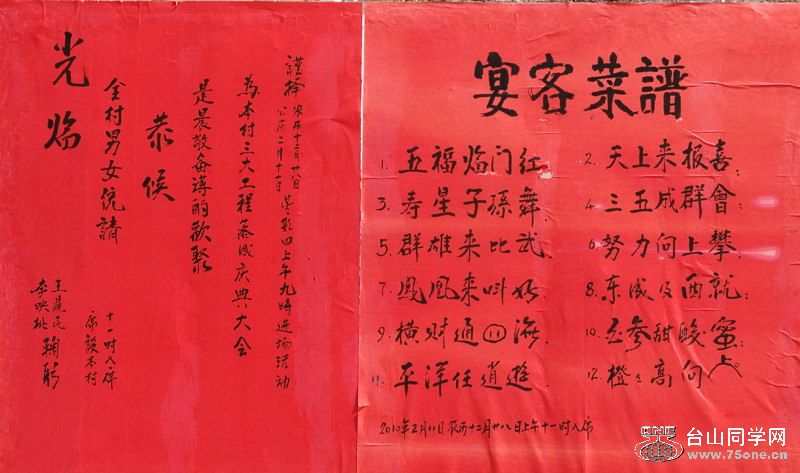 謹择农历十二月廿八日
公历二月十一日
星期四上午九時进场活动
為本村三大工程落成庆典大会
是晨敬备薄酌歡聚
恭候
全村男女统請
光临
十一时入席
席設本村
鞠躬
宴客菜譜
1. 五福临门红;
2. 天上来报喜;
3. 寿星子孫舞;
4. 三五成群會;
5. 群雄来比武;
6. 努力向上攀;
7. 鳳凰来叫好;
8. 东成及西就;
9. 横财通四海;
10. 玄参甜酸蜜;
11. 平洋任逍遊;
12. 橙々高向上。
2010年2月11日农历十二月廿八日上午十一时入席
台山同学网
www.75one.cn